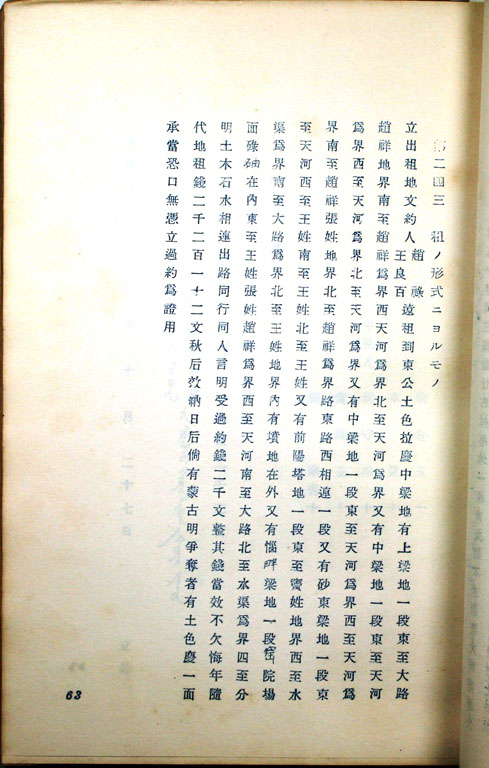 二四三 租ノ形式ニヨルモノ
立出租地文約人趙祿王良百遠租到東公土色拉慶中梁地有上梁地一段東至大路
趙祥地界南至趙祥爲界西天河爲界北至天河爲界又有中梁地一段東至天河
爲界西至天河爲界北至天河爲界又有中梁地一段東至天河爲界西至天河爲
界南至趙祥張姓地界北至天河爲界路東路西相連一段又有砂東梁地一段東
至天河西至王姓南至王姓北至王姓又有前陽塔地一段東至竇姓地界西至水
渠爲界南至大路爲界北至王姓地界內有墳地在外又有惱畔梁地一段窰院場
面碌砫在內東至王姓張姓趙祥爲界西至天河南至大路北至水渠爲界四至分
明土木石水相連出路同行同人言明受過約錢二千文整其錢當效不欠悔年隨
代地租錢二千二百一十二文秋后效納日后倘有蒙古明爭奪者有土色慶一面
承當恐口無憑立過約爲證用
63